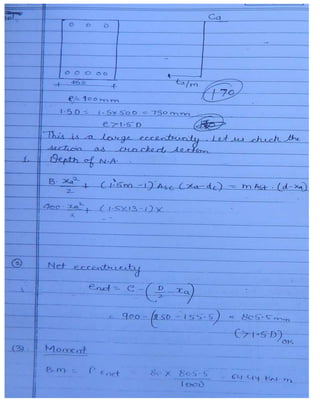 Ca
0 0 0
0 0 0 0 0
ta/m
170
e = 900mm
1.5D = 1.5x500 = 750mm
e > 1.5D
This is a large eccentricity. Let us check the
section as cracked section
1. Depth of N.A.
B. xa²/2 + (1.5m-1) Asc (xa-dc) = m Ast. (d-xa)
+ (1.5x13-1) x
② Net eccentricity
enet = e - (D/2 - xa)
= 900 - (250 - 155.5) = 805.5 mm
(> 1.5D) OK.
(3) Moment
B.M = P enet = 80 x 805.5/1000 = 64.44 kN.m